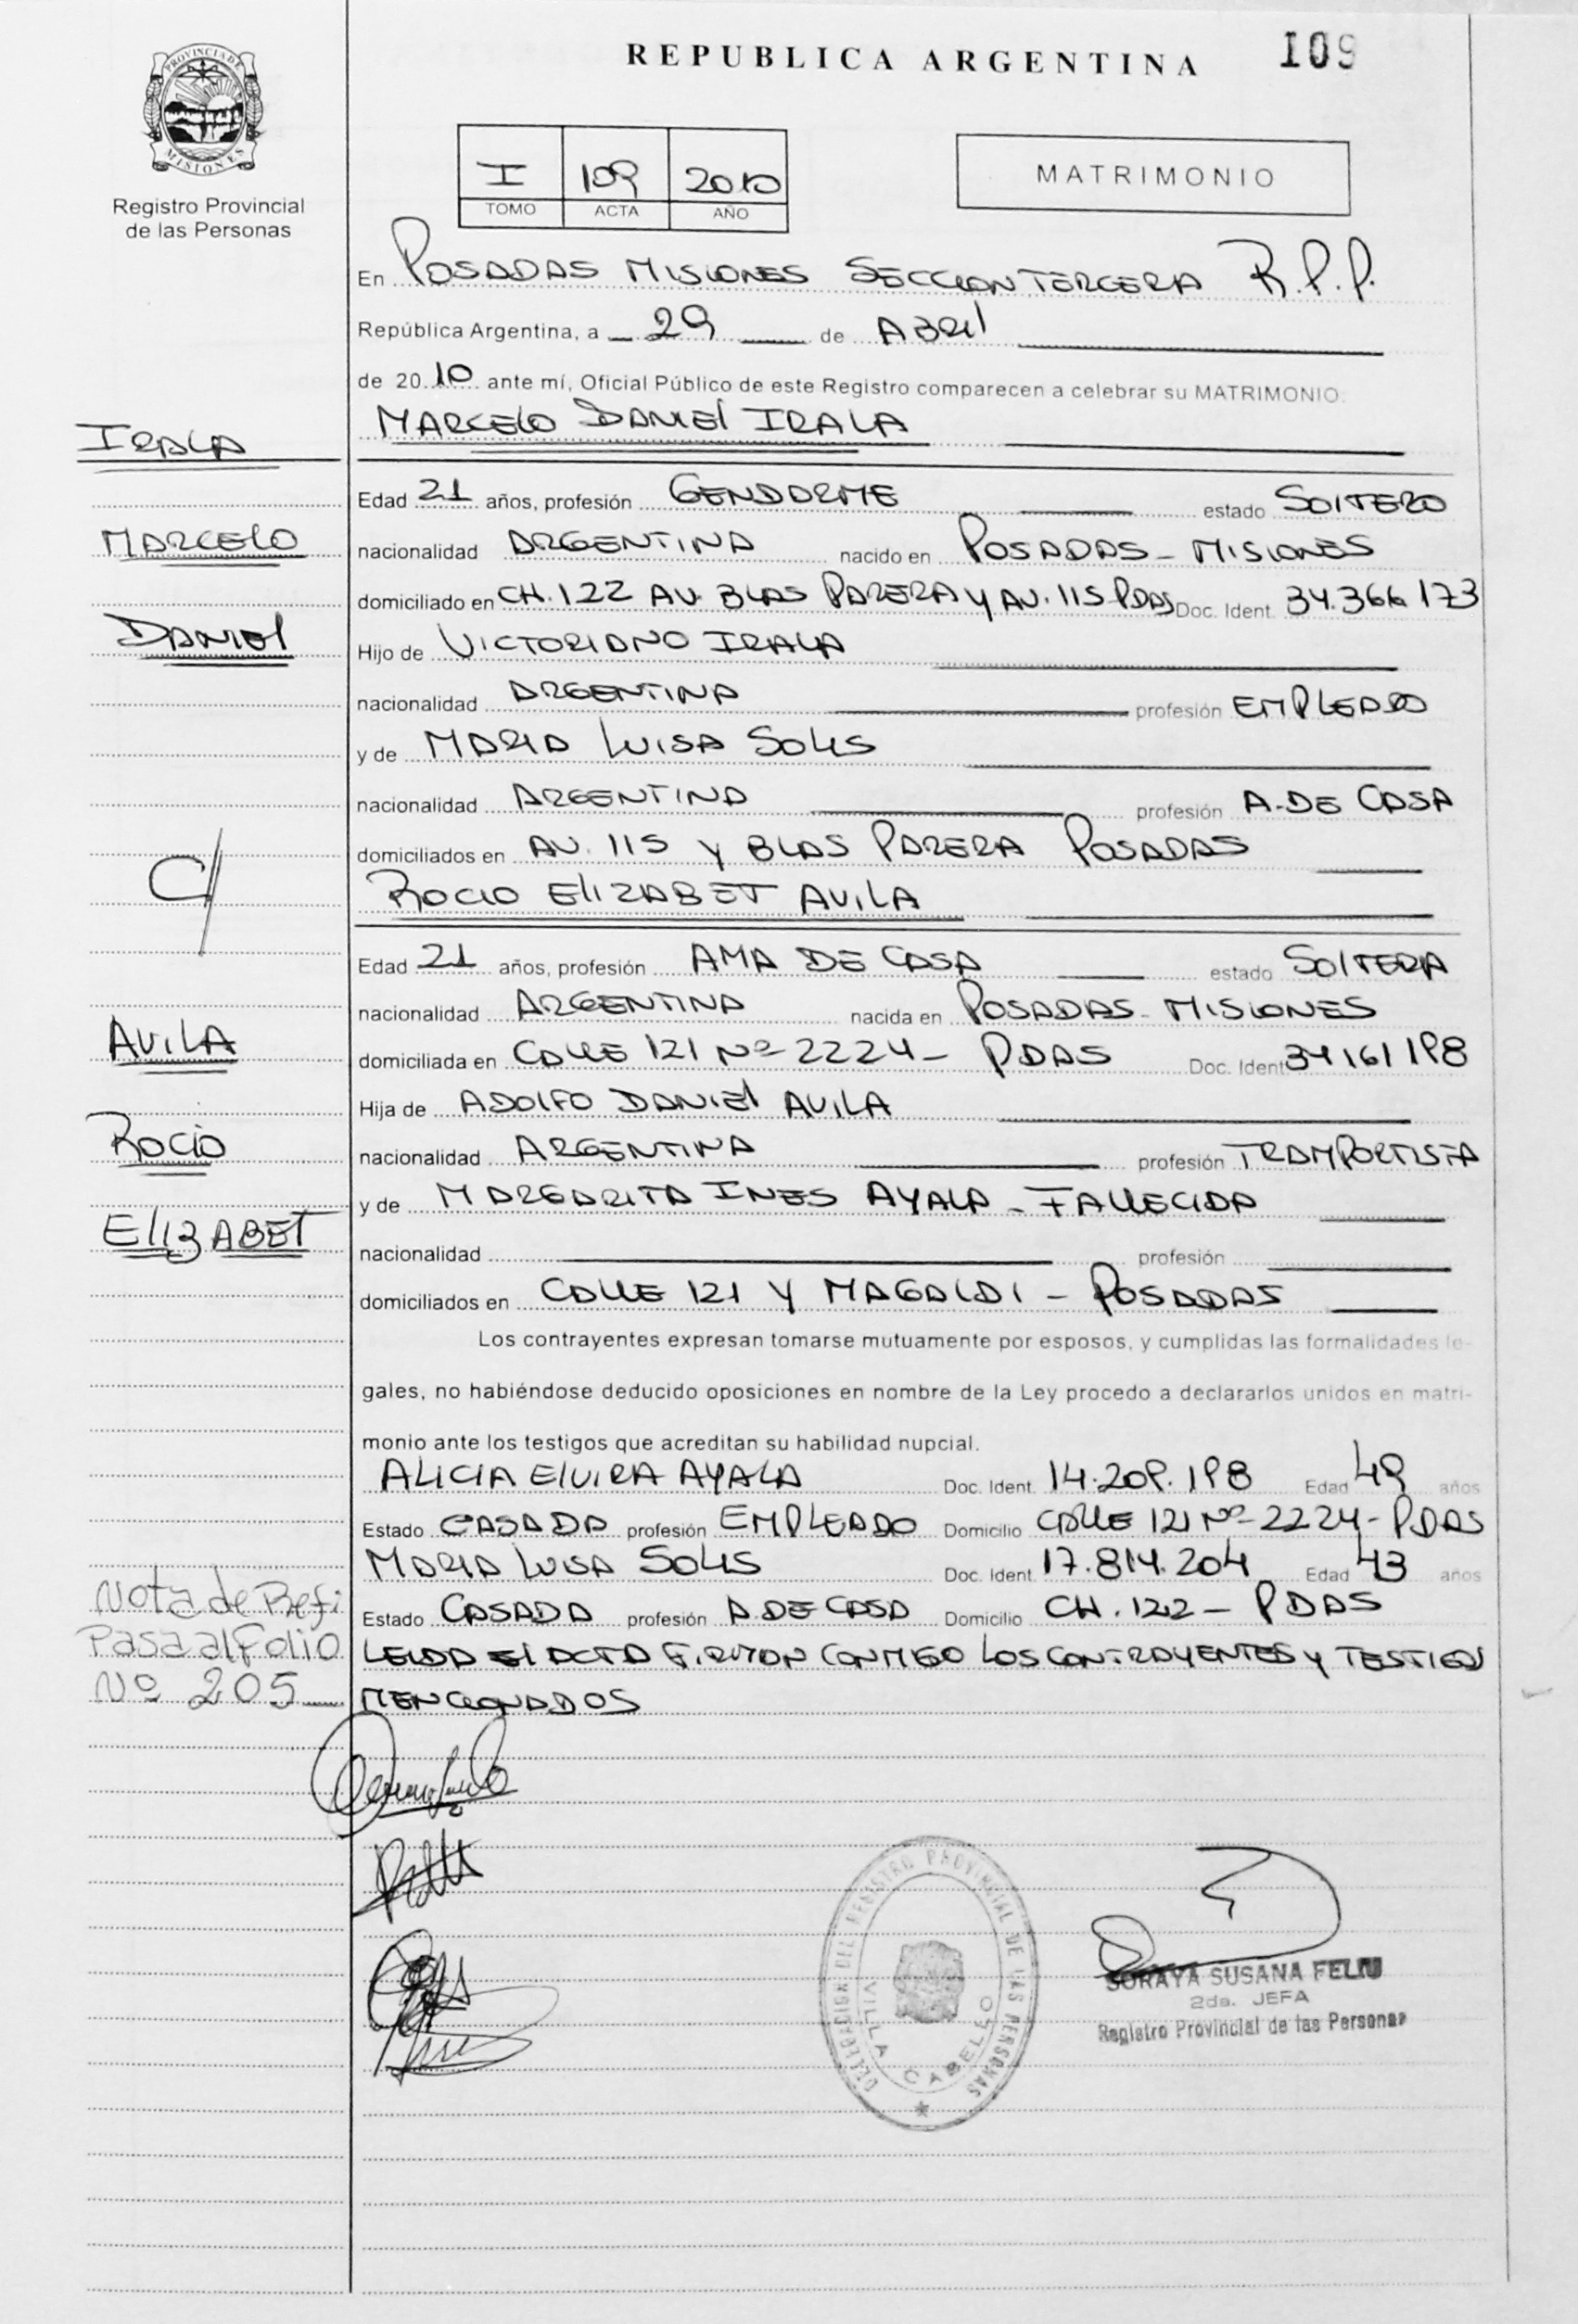 REPUBLICA ARGENTINA
109
PROVINCIA DE
MISIONES
Registro Provincial
de las Personas
I 109 2010
TOMO ACTA AÑO
MATRIMONIO
En POSADAS MISIONES SECCION TERCERA R.P.P.
República Argentina, a 29 de ABRIl
de 2010 ante mí, Oficial Público de este Registro comparecen a celebrar su MATRIMONIO:
MARCELO DANIEl IRALA
IRALA
Edad 21 años, profesión GENDARME estado SOlTERO
MARCELO
nacionalidad ARGENTINA nacido en POSADAS - MISIONES
domiciliado en CH. 122 AV. BLAS PARERA Y AV. 115 PDAS Doc. Ident. 34.366.173
DANIEl
Hijo de VICTORIANO IRALA
nacionalidad ARGENTINA profesión EMPLEADO
y de MARIA LUISA SOLIS
nacionalidad ARGENTINA profesión A. DE CASA
domiciliados en AV. 115 Y BLAS PARERA POSADAS
C/
ROCIO ElIZABET AVILA
Edad 21 años, profesión AMA DE CASA estado SOlTERA
nacionalidad ARGENTINA nacida en POSADAS - MISIONES
AVILA
domiciliada en CALLE 121 Nº 2224 - PDAS Doc. Ident 34161198
Hija de ADOlFO DANIEl AVILA
ROCIO
nacionalidad ARGENTINA profesión TRAMPORTISTA
y de MARGARITA INES AYALA - FALLECIDA
ElIZABET
nacionalidad profesión
domiciliados en CALLE 121 Y MAGALDI - POSADAS
Los contrayentes expresan tomarse mutuamente por esposos, y cumplidas las formalidades le-
gales, no habiéndose deducido oposiciones en nombre de la Ley procedo a declararlos unidos en matri-
monio ante los testigos que acreditan su habilidad nupcial.
ALICIA ElVIRA AYALA Doc. Ident. 14.209.198 Edad 49 años
Estado CASADA profesión EMPLEADO Domicilio CALLE 121 Nº 2224 - PDAS
MARIA LUISA SOLIS Doc. Ident. 17.814.204 Edad 43 años
Nota de Refi
Estado CASADA profesión A. DE CASA Domicilio CH. 122 - PDAS
Pasa al Folio
LEIDA El ACTA FIRMAN CONMIGO LOS CONTRAYENTES Y TESTIGOS
Nº 205
MENCIONADOS
DELEGACION DEL REGISTRO PROVINCIAL DE LAS PERSONAS
VILLA CABELLO
SORAYA SUSANA FELIU
2da. JEFA
Registro Provincial de las Personas